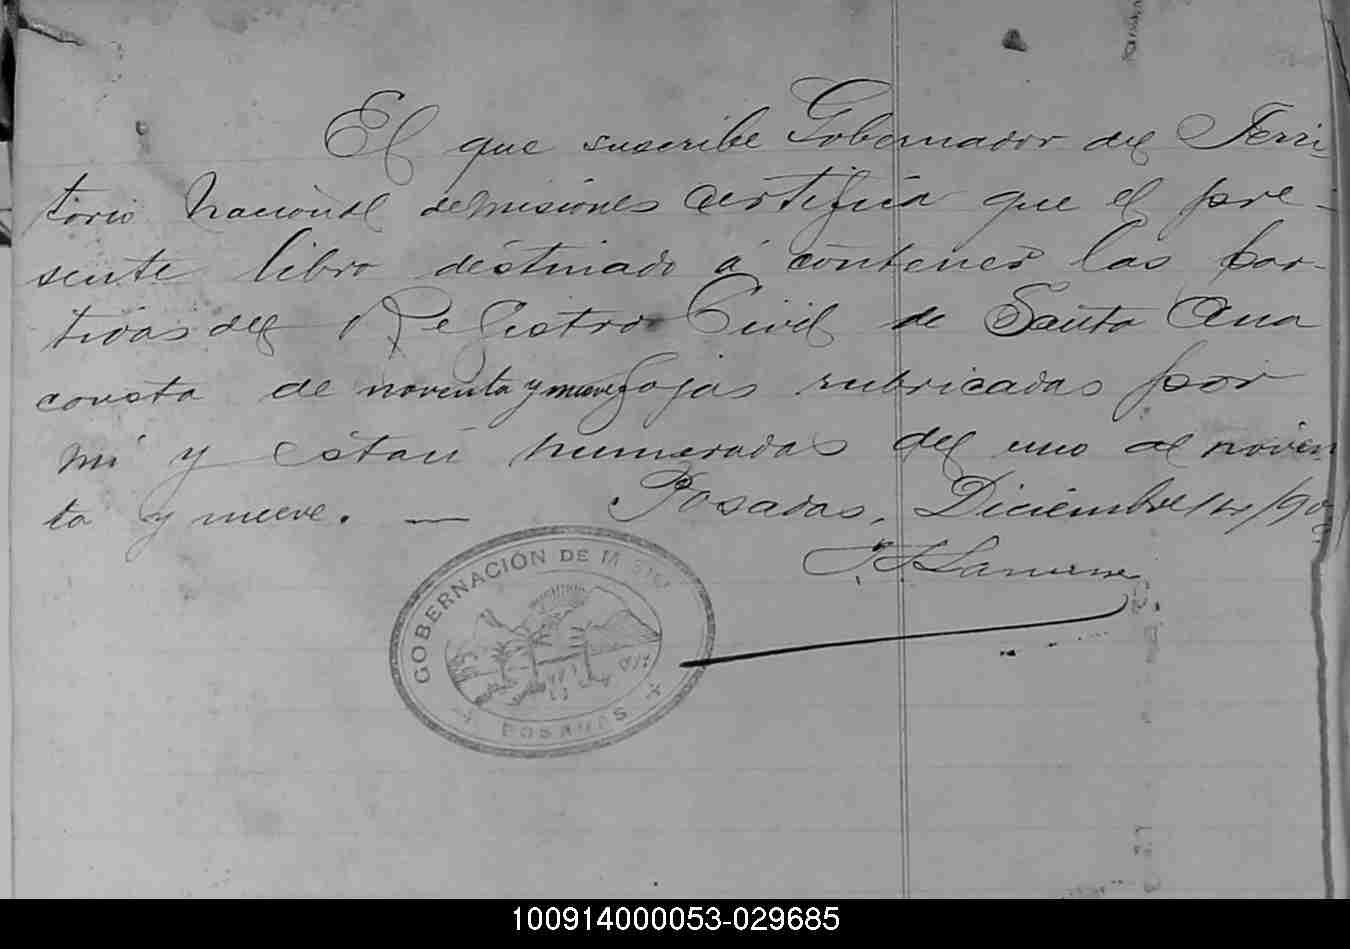 El que suscribe Gobernador del Terri-
torio Nacional de Misiones certifica que el pre-
sente libro destinado á contener las par-
tidas del Registro Civil de Santa Ana
consta de noventa y nueve fojas rubricadas por
mi y están numeradas del uno al noven
ta y nueve. — Posadas, Diciembre 14/90
GOBERNACIÓN DE MISIONES
POSADAS
100914000053-029685